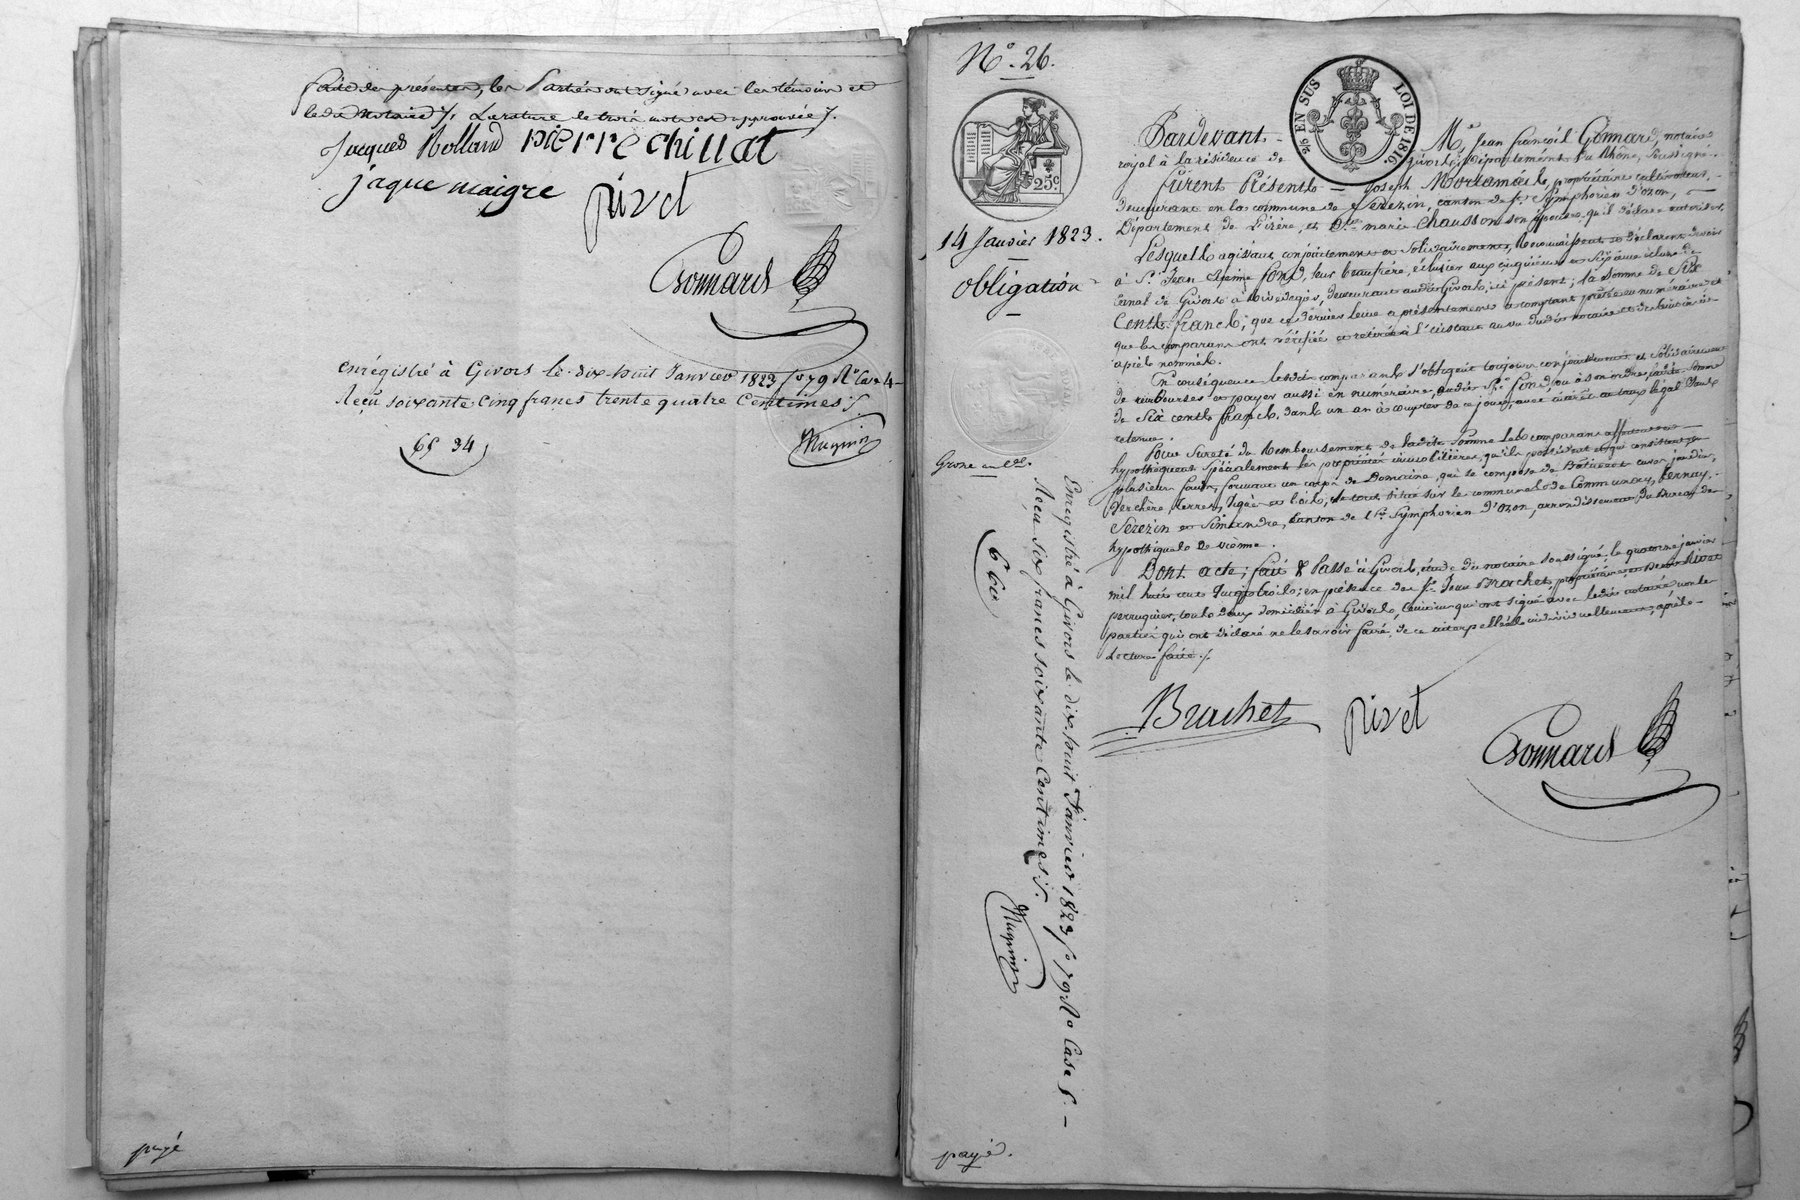 faite des présentes, les Parties ont signé avec les témoins et
ledit Notaire ./. La rature de trois mots est approuvée ./.
Jacques Rolland pierre chillat
jaque maigre pivet
Gonnard
enrégistré à Givors le dix huit Janvier 1823 f° 79 R° Case 4
Reçu soixante cinq francs trente quatre Centimes ./.
65 34
payé
N° 26.
25 c
25 EN SUS LOI DE 1816.
14 Janvier 1823.
obligation
Grosse en
Enregistré à Givors le dix huit Janvier 1823 f° 79 R° Case 5.
Reçu six francs soixante Centimes ./.
6 60
Pardevant M.e Jean françois Gonnard, notaire
royal à la résidence de Givors, Département du Rhône, soussigné.
furent Présents Joseph propriétaire cultivateur,
demeurant en la commune de Serezin, canton de St. Symphorien d'ozon,
Département de l'isère, et marie Chausson son épouse qu'il déclare autoriser
Lesquels agissant conjointement et solidairement, Reconnaissent et déclarent devoir
à Sr. Jean leur beaufrère, éclusier aux cinquième et sixième écluses du
Canal de Givors à Rivedegier, demeurant audit Givors, ici présent; la somme de Six
Cents francs; que ce dernier leur a présentement et comptant prêtée en numéraire et
que les comparans ont vérifiée et retirée à l'instant au vu dudit notaire et des témoins ci-
après nommés.
En conséquence lesdits comparants s'obligent toujours conjointement et solidairement
de rembourser et payer aussi en numéraire, audit Sr. ou à son ordre, ladite somme
de six cents francs, dans un an à compter de ce jour, avec intérêt au taux légal sans
retenue.
Pour sureté du Remboursement de ladite somme les comparans affectent et
hypothèquent spécialement les propriétés immobilières, qu'ils possèdent et qui consistent en
plusieurs fonds, formant un corps de Domaine, qui se compose de Bâtiment, cour, jardin,
Verchère, terres, vignes et bois, le tout situé sur les communes de Communay, Ternay,
Serezin et Simandre, canton de St. Symphorien d'Ozon, arrondissement du Bureau des
hypothèques de vienne.
Dont acte; fait & Passé à Givors, étude du notaire soussigné, le quatorze janvier
mil huit cent vingt trois; en présence des Srs. Jean Brachet, propriétaire et
perruquier, tous deux domiciliés à Givors, témoins qui ont signé avec ledit notaire non les
parties qui ont déclaré ne le savoir faire, de ce interpellées individuellement, après
Lecture faite ./.
Brachet pivet
Gonnard
payé.